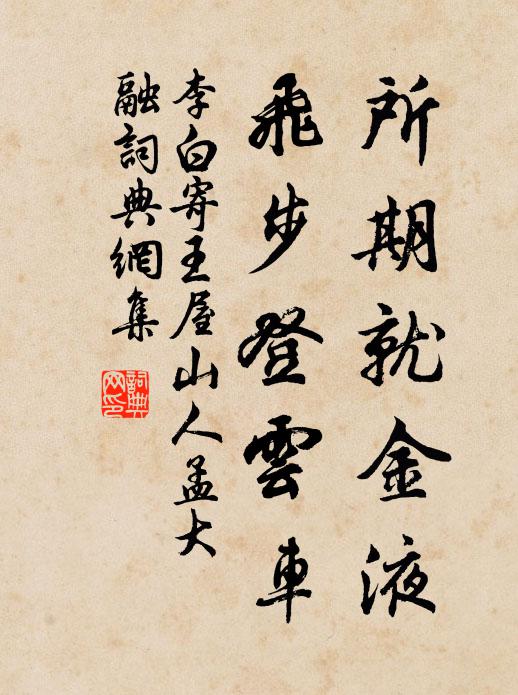 所期就金液
飛步登雲車
李白寄王屋山人孟大
融詞典網集
詞典網印